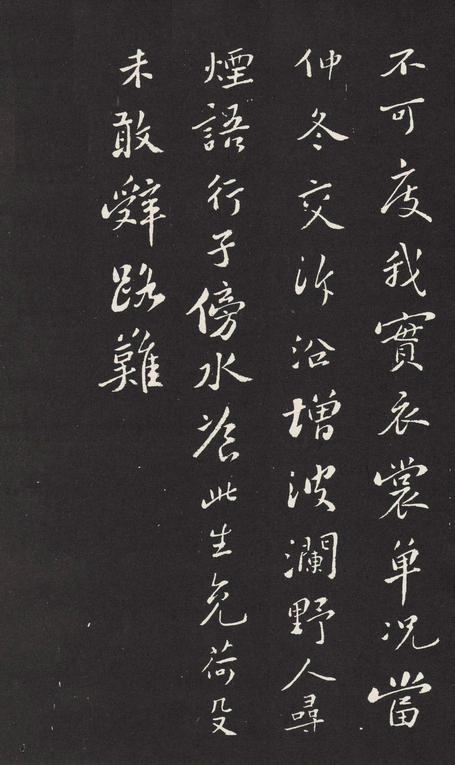 不可度我實衣裳單況當
仲冬交泝沿增波瀾野人尋
煙語行子傍水飡此生免荷殳
未敢辭路難